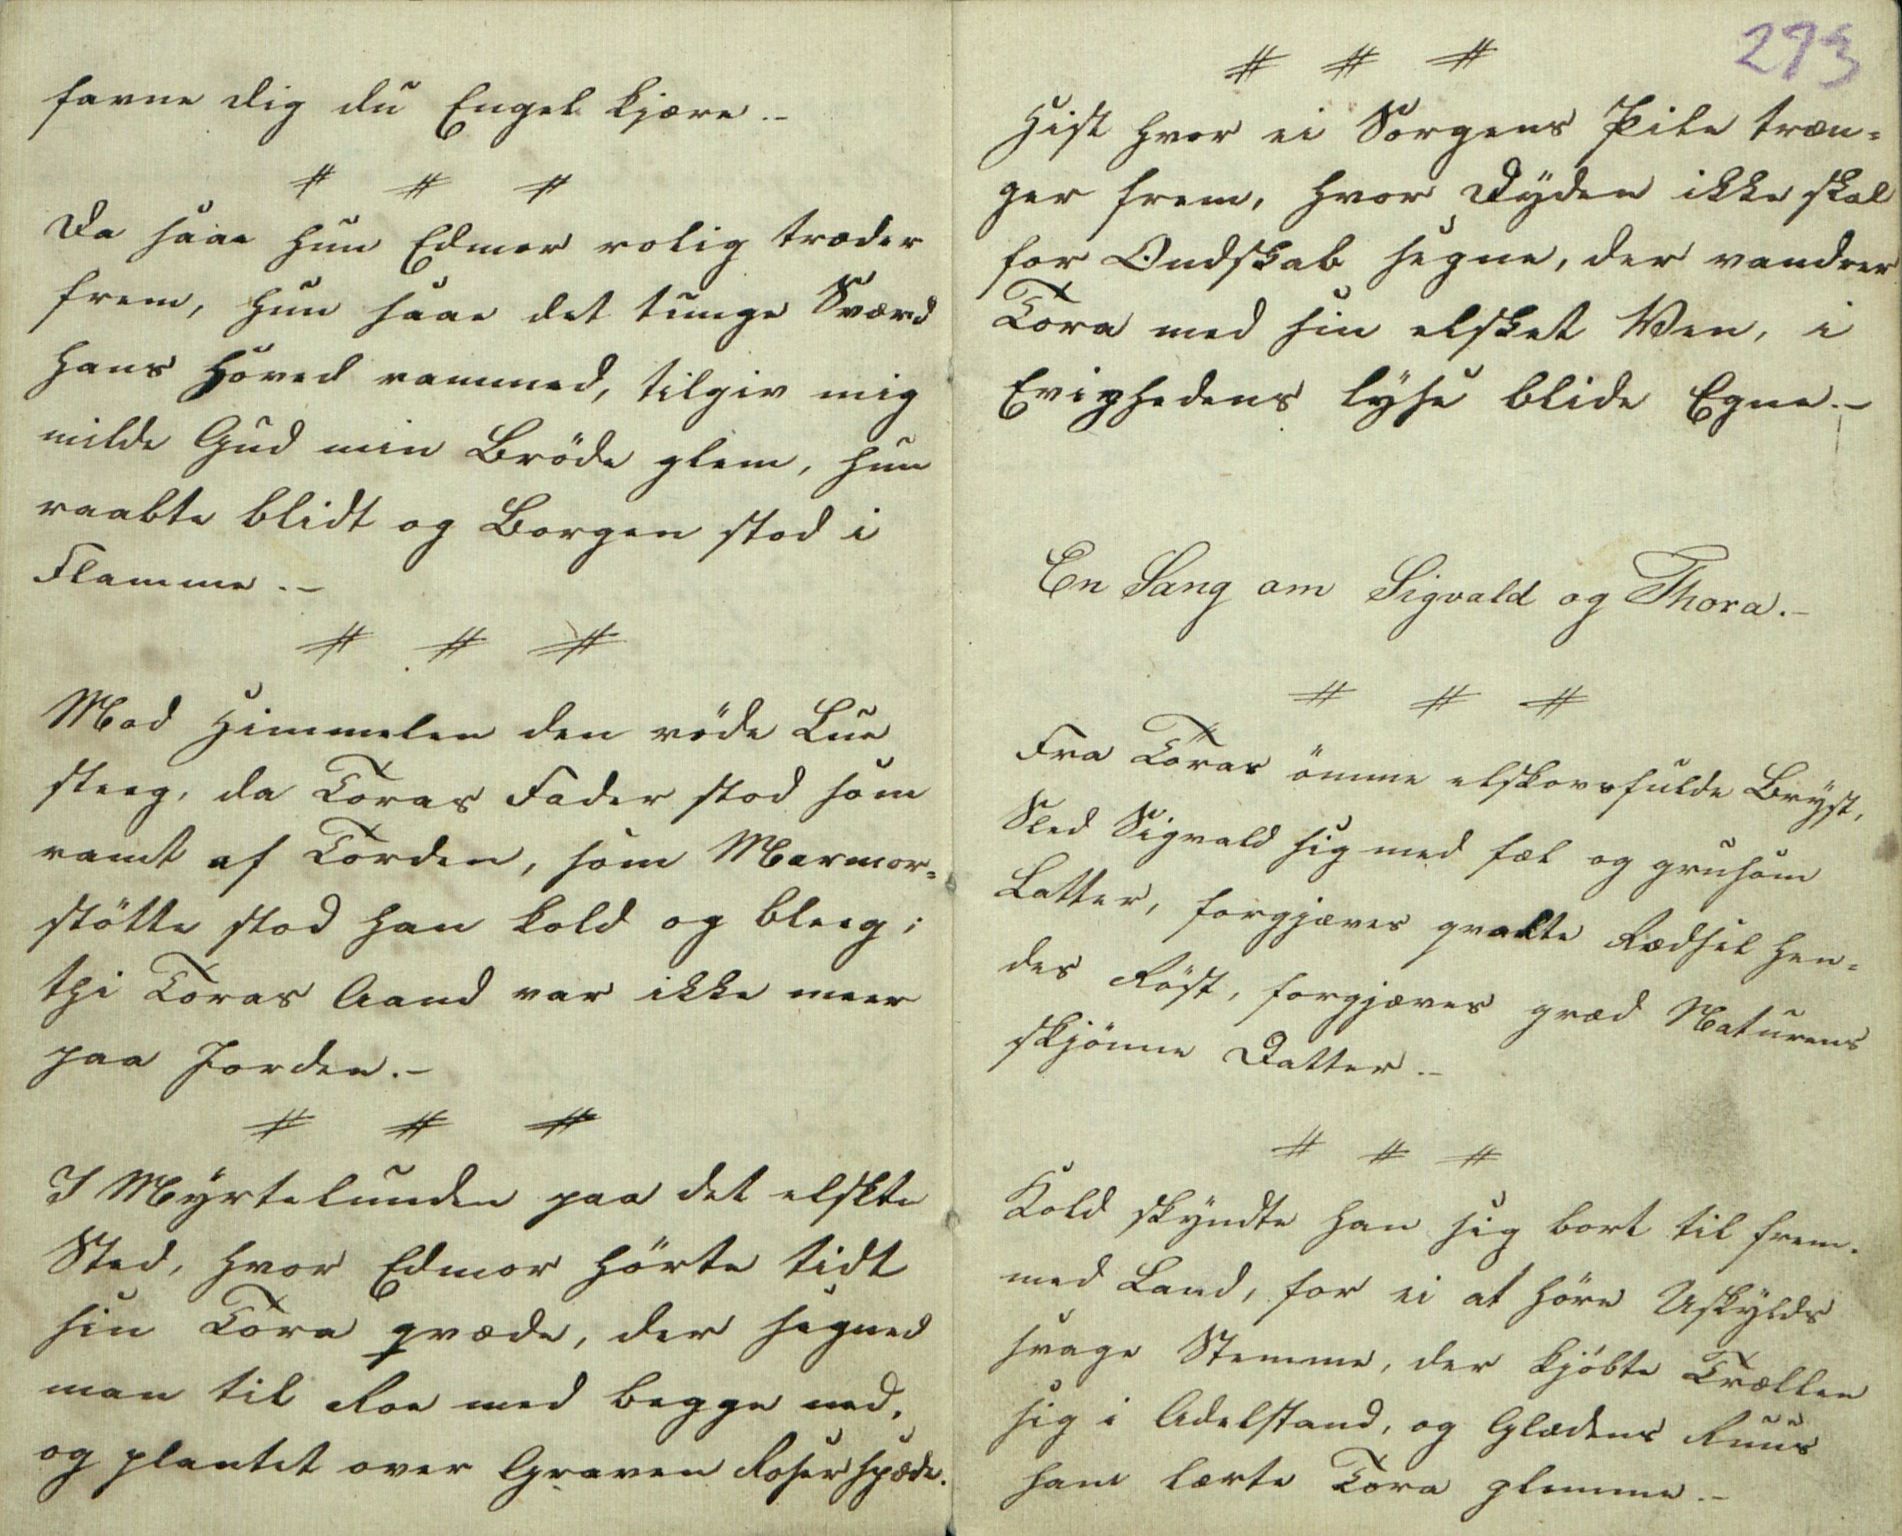 favne dig du Engel kjære.–
# # #
Da saae hun Edmor rolig træder
frem, hun saae det tunge Sværd
hans Hoved rammed, tilgiv mig
milde Gud min Bröde glem, hun
raabte blidt og Borgen stod i
Flamme.–
# # #
Mod Himmelen den röde Lue
steeg, da Toras Fader stod som
ramt af Torden, som Marmor-
stötte stod han kold og bleeg;
thi Toras Aand var ikke meer
paa Jorden.–
# # #
I Myrtelunden paa det elskte
Sted, hvor Edmor hörte tidt
sin Tora qvæde, der segned
man til Roe med begge ned,
og plantet over Graven Roser spæde.
293
# # #
Hist hvor ei Sorgens Pile træn-
ger frem, hvor Dyden ikke skal
for Ondskab segne, der vandrer
Tora med sin elsket Ven, i
Evighedens lyse blide Egne.–
En Sang om Sigvald og Thora.–
# # #
Fra Toras ömme elskovsfulde Bryst,
Sled Sigvald sig med fæl og grusom
Latter, forgjæves qvalte Rædsel hen-
des Röst, forgjæves græd Naturens
skjönne Datter.–
# # #
Kold skyndte han sig bort til frem-
med Land, for ei at höre Uskylds
svage Stemme, der kjöbte Trællen
sig i Adelstand, og Glædens Ruus
ham lærte Tora glemme.–